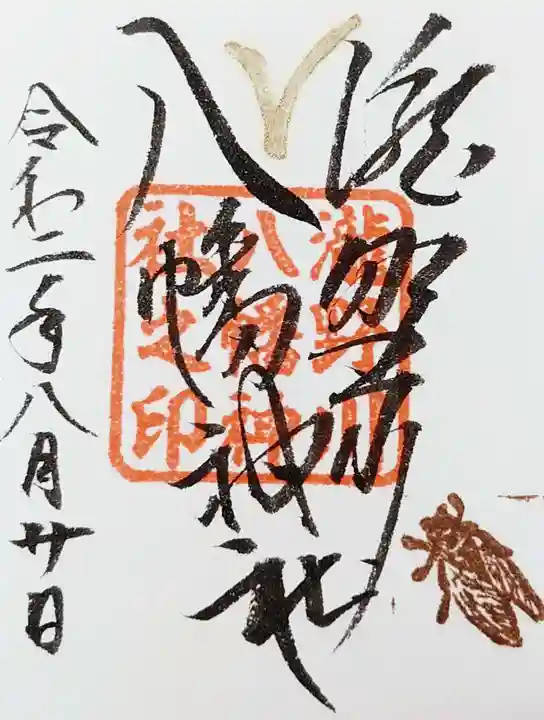 滝野川
八幡神社
令和二年八月廿日
瀧野川
八幡神
社之印